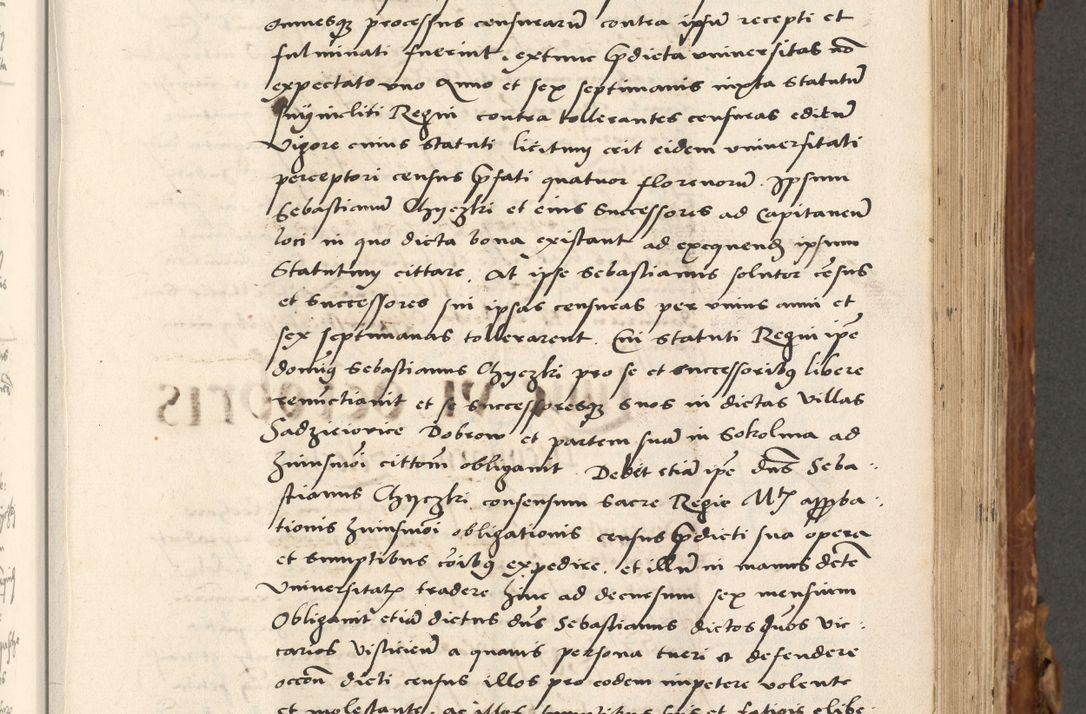 omnesq processus censurarū contra ipsū recepti et
fulminati fuerint, extunc p̄dicta universitas nō
expectato uno Anno et sex septimanis iuxta statutū
incliti Regni contra tollerantes censuras editū
Vigore cuius statuti licitum erit eidem universitati
perceptori census p̄fati quatuor florenorū. Ipsum
Sebastianū Chyczki et eius successores ad Capitaneū
loci in quo dicta bona existant ad exequend ipsum
Statutum cittare. At ipse Sebastianus solutor cēsus
et successores sui ipsas censuras per unius anni et
sex septimanas tollerarent. Cui statuti Regni ipē
domus Sebastianus Chyczki pro se et successoribus libere
renuctiavit et se successoresq suos in dictas villas
Sadzieiovice Dobrow et partem suā in Sokolma ad
huiusmōi cittom̄ obligavit. Debet etiā ipē Dns Seba-
stianus Chyczki consensum Sacre Regie Mtis approba-
tionis huiusmōi obligationis census p̄dicti sua opera
et sumptibus cōibus expedire, et illū in manus dcte
Universitatis tradere hinc ad decursum sex mensium
Obligavit etiā dictus dns Sebastianus dictos duos vic-
carios Visliciēn a quavis persona tueri et defendere
occoñ dicti census illos pro eodem impetere volente
et molestante, ac illos sumptibus suis et fatigis elibe-